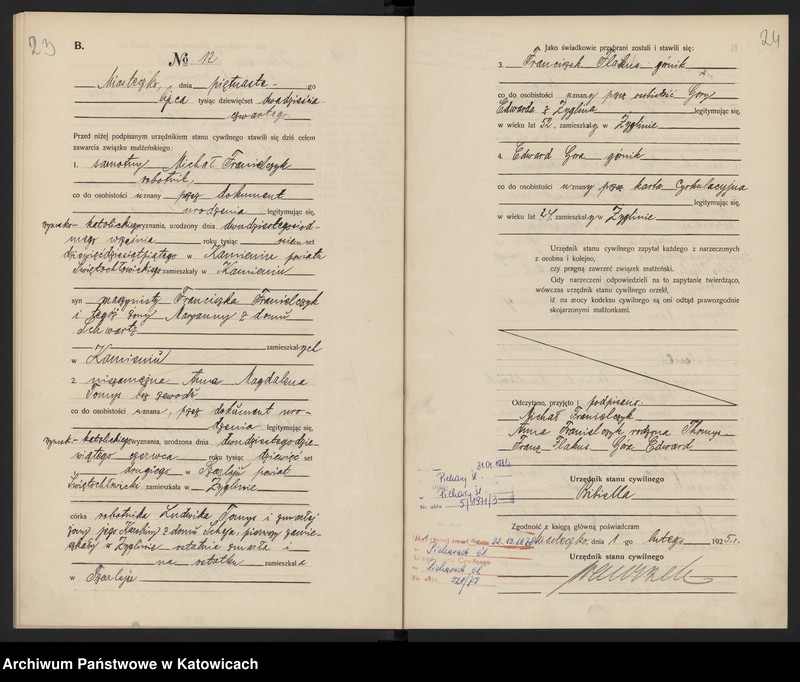 23
B.
№ 12
Miasteczko, dnia piętnaste- go
lipca tysiąc dziewięćset dwadzieścia
czwartego
Przed niżej podpisanym urzędnikiem stanu cywilnego stawili się dziś celem
zawarcia związku małżeńskiego:
1. samotny Michał Franielczyk
robotnik,
co do osobistości uznany przez dokument
urodzenia legitymując się,
rzymsko- katolickiego wyznania, urodzony dnia dwudziestego i od-
września roku tysiąc osiem set
dziewięćdziesiątpiątego w Kamieniu powiatu
Świętochłowickiego zamieszkały w Kamieniu
syn maszynisty Franciszka Franielczyk
i tegoż żony Maryanny z domu
Schwartz
zamieszkałych
w Kamieniu
2. niezamężna Anna Magdalena
Tomys bez zawodu
co do osobistości uznana, przez dokument uro-
dzenia legitymując się,
rzymsk- katolickiego wyznania, urodzona dnia dwudziestego dzie-
wiątego czerwca roku tysiąc dziewięć set
drugiego w Szarleju powiat
Świętochłowicki zamieszkała w Żyglinie
córka robotnika Ludwika Tomys i zmarłej
żony jego Karoliny z domu pierwszy zamie-
szkały w Żyglinie ostatnia zmarła i
na ostatku zamieszkała
w Szarleju
24
Jako świadkowie przybrani zostali i stawili się:
3. Franciszek Flakus górnik
z
co do osobistości uznany przez osobistość Gory
Edwarda z Żyglina legitymując się,
w wieku lat 52. zamieszkały w Żyglinie
4. Edward Gora górnik
co do osobistości uznany przez karta Cyrkulacyjna
legitymując się,
w wieku lat 24 zamieszkały w Żyglinie
Urzędnik stanu cywilnego zapytał każdego z narzeczonych
z osobna i kolejno,
czy pragną zawrzeć związek małżeński.
Gdy narzeczeni odpowiedzieli na to zapytanie twierdząco,
wówczas urzędnik stanu cywilnego orzekł,
iż na mocy kodeksu cywilnego są oni odtąd prawozgodnie
skojarzonymi małżonkami.
Odczytano, przyjęto i podpisano
Michał Franielczyk
Anna Franielczyk rodzona Thomys
Franz Flakus Góra Edward
Urzędnik stanu cywilnego
Bibiella
Piekary Śl.
Piekary Śl.
5/1971/3
Zgodność z księgą główną poświadczam
Miasteczko, dnia 1 -go lutego 1925 r.
Urzędnik stanu cywilnego
Piekarach Śl.
Piekarach Śl.
Archiwum Państwowe w Katowicach